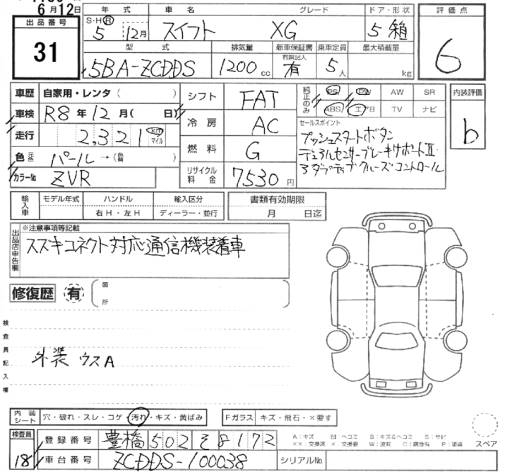 6月12日
出品番号 年 車名 グレード ドア・形状 評価点
31
S・H・R 5 年 12月 スイフト XG 5 箱
型式 排気量 新車保証書 乗車定員 最大積載量
5BA-ZCDDS 1200 cc 有 5人 kg
6
車歴 自家用・レンタ
車検 R8年12月( 日)
走行 2,321 マイル
色 パール→(
カラーNo. ZVR
シフト FAT
冷房 AC
燃料 G
リサイクル料金 7530円
純正のみ PS PW AW SR
ABS エアB TV ナビ
セールスポイント
プッシュスタートボタン
デュアルセンサーブレーキサポートII
アダプティブクルーズコントロール
内装評価
b
輸入車 モデル年式 ハンドル 輸入区分
年 右H・左H ディーラー・並行
書類有効期限
月 日迄
出品店申告欄
※注意事項等記載
スズキコネクト対応通信機装着車
修復歴 有 箇所
検査員記入欄
外装 ウスA
内装シート 穴・破れ・スレ・コゲ・汚れ・キズ・黄ばみ
Fガラス キズ・飛石・×要す
検査員 18
登録番号 豊橋 502 る 8172
車台番号 ZCDDS-100038
シリアルNo.
A:キズ
スペア